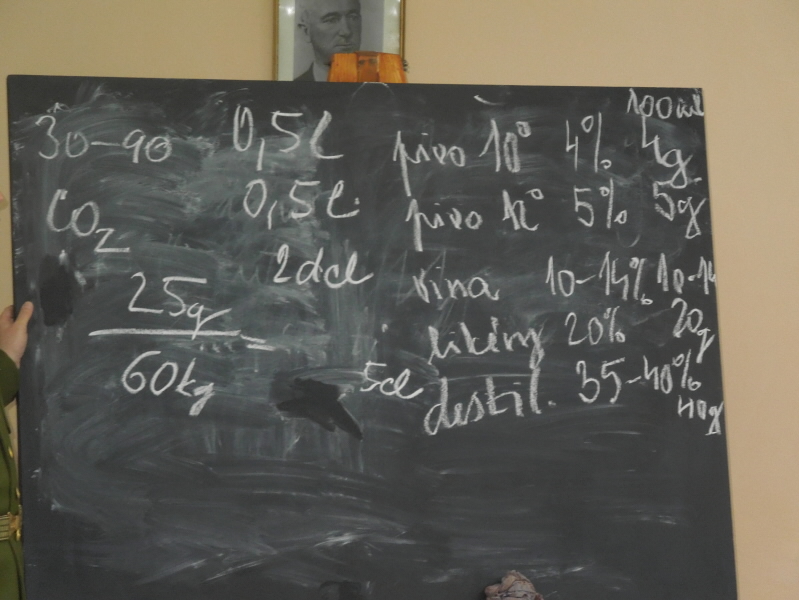 100ml
30-90 0,5l pivo 10° 4% 4g
CO2 0,5l pivo 12° 5% 5g
2dcl vína 10-14% 10-14
25g likéry 20% 20g
60kg 5cl destil. 35-40% 40g